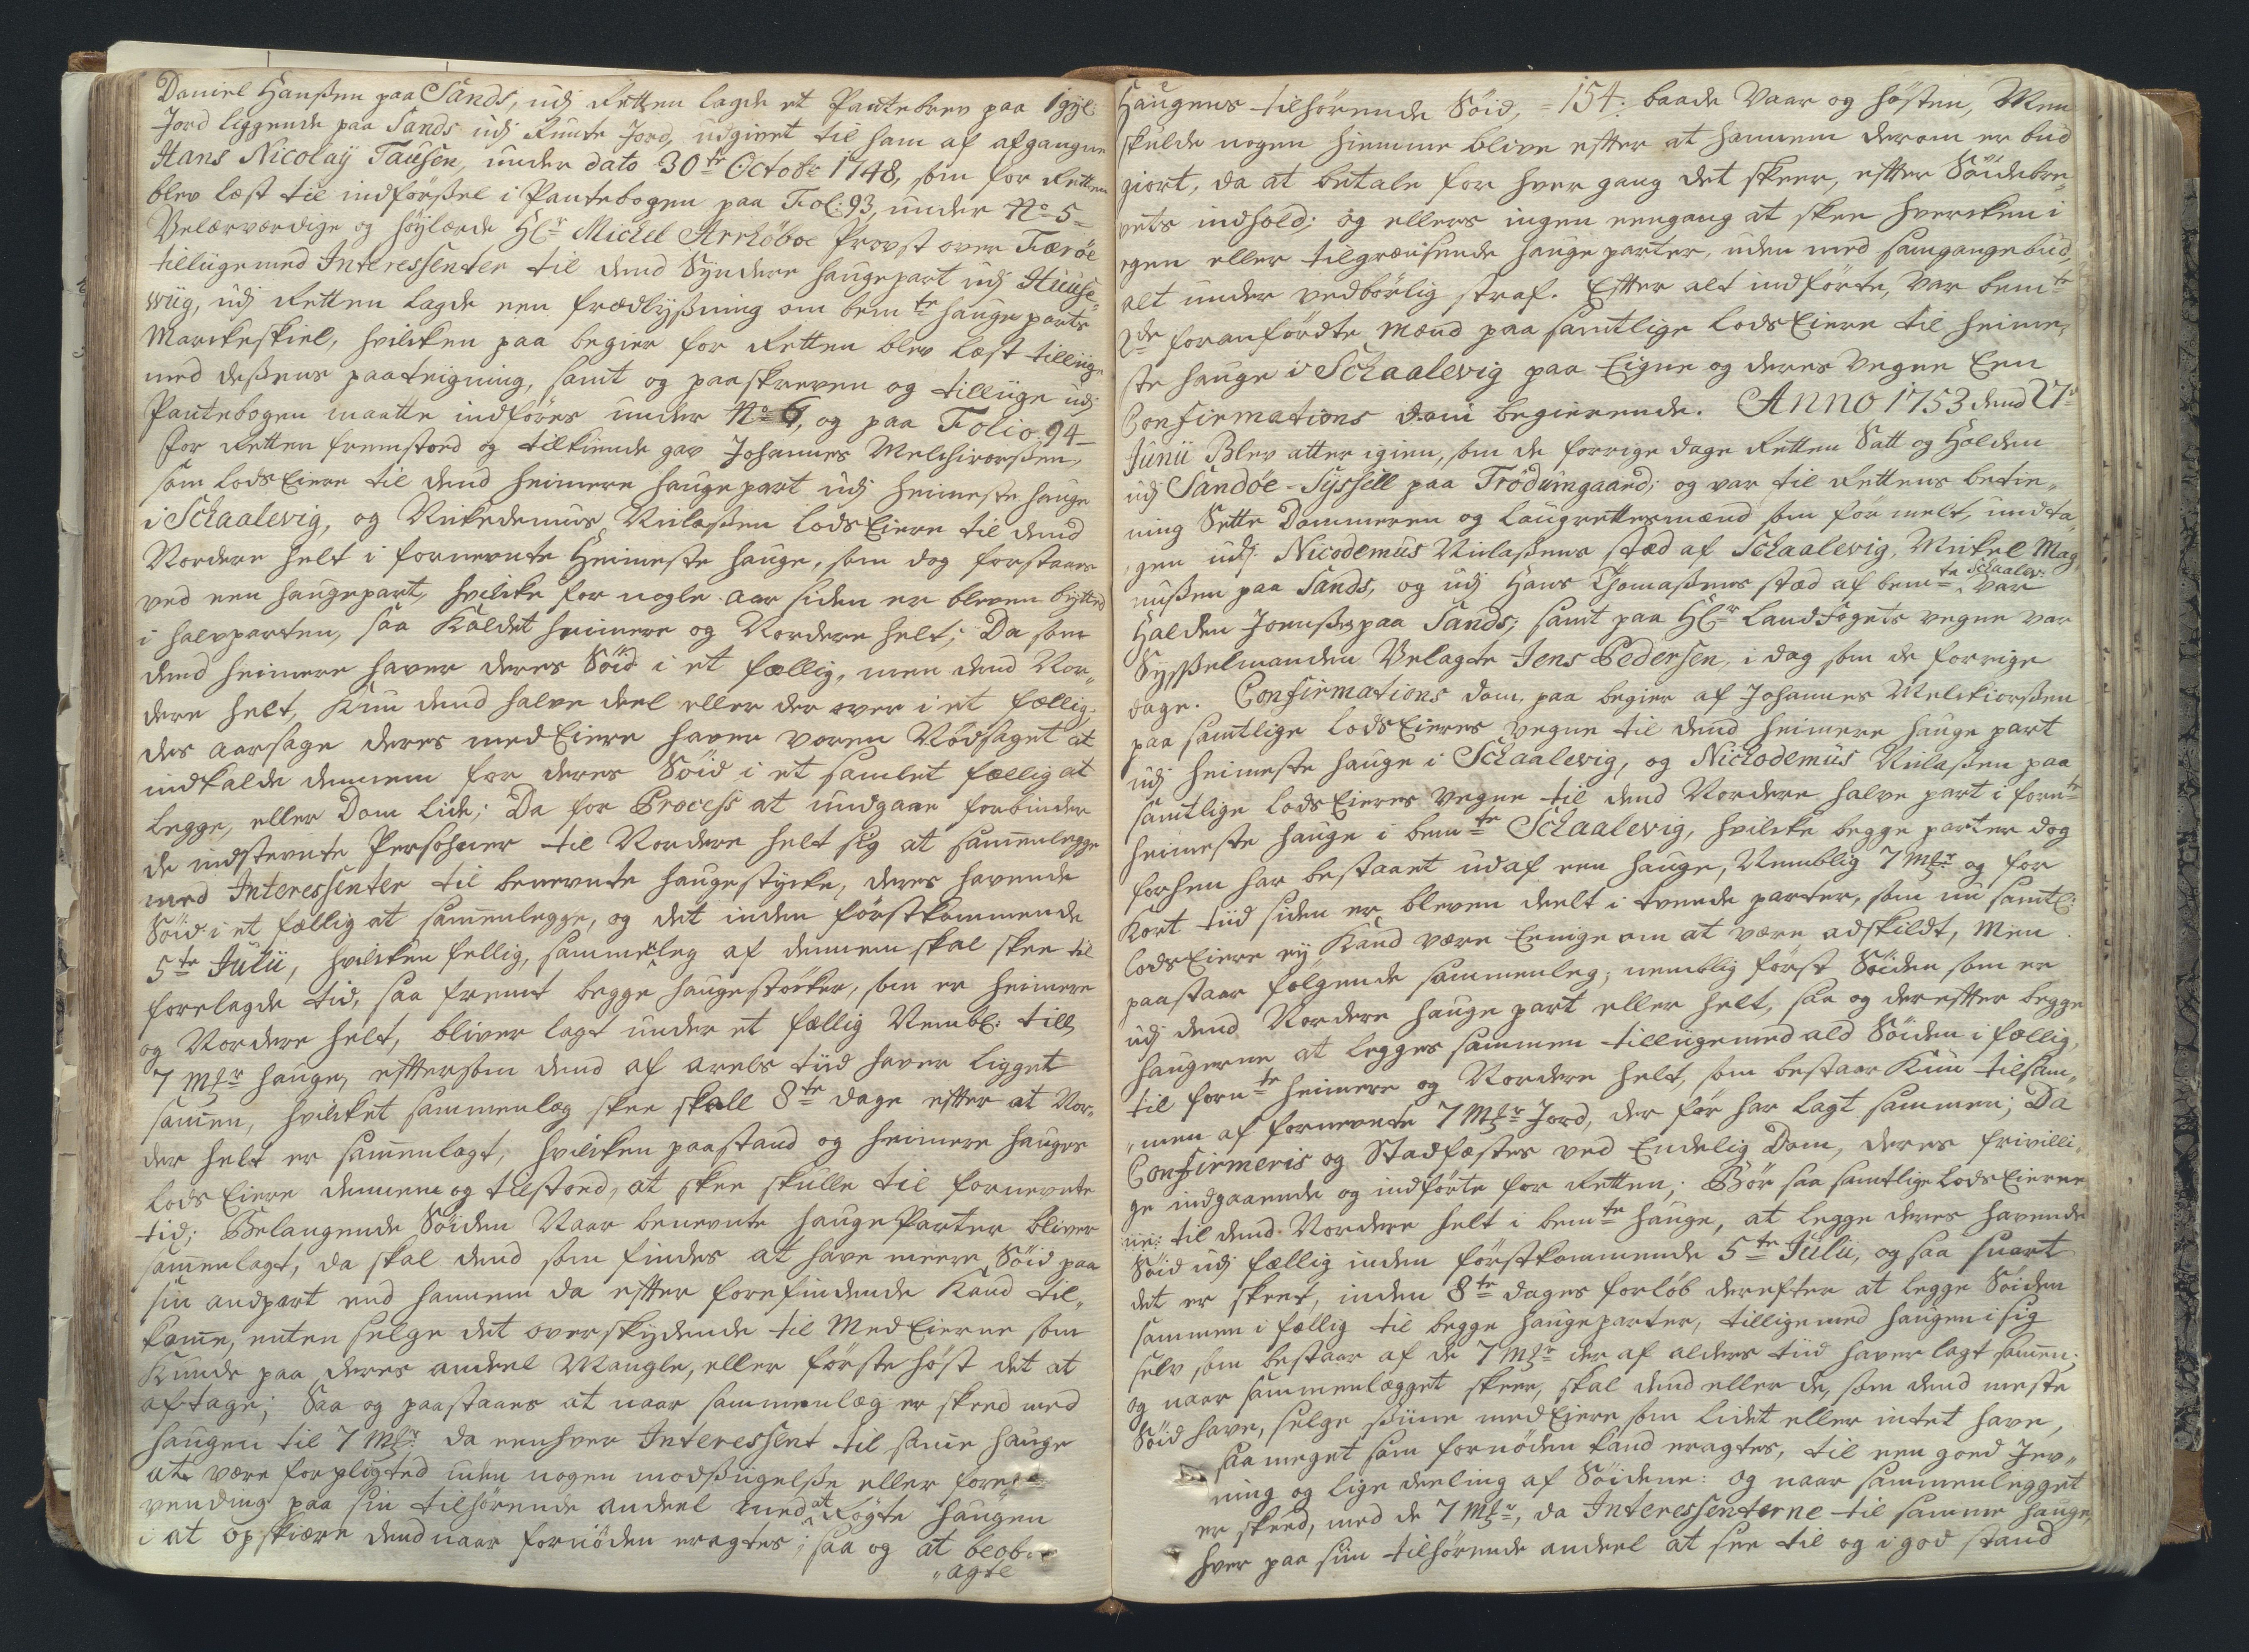 Daniel Hanßen paa Sands, udj Retten lagde et Pantebrev paa 1 gyl:
Jord liggende paa Sands udj Runte Jord, udgivet til ham af afgangne
Hans Nicolaÿ Tausen, under dato 30te Octobr 1748, som for Retten
blev læst til indførßel i Pantebogen paa Fol: 93, under No 5
Velærværdige og høylærde Hr Michel Arrhøboe Provst over Færöe
tilligemed Interessenter til dend Syndere haugepart udj Huuse-
wiig, udj Retten lagde een fredlyßning om bemte hauge parts
Marckeskiel, hvilcken paa begier for Retten blev læst tilliige
med deßens paateigning, samt og paaskreven og tilliige udj
Pantebogen maatte indføres under No 6, og paa Folio 94
For Retten fremstoed og tilkiende gav Johannes Melchiorßen,
som lods Eiere til dend heimere haugepart udj heimeste hauge
i Schaalevig, og Nickedemus Nielaßen lods Eiere til dend
Nordere helt i fornevnte Heimeste hauge, som dog forstaaes
ved een haugepart, hvilcke for nogle aar siden er bleven bÿtted
i halvparten, saa Kaldet heimere og Nordere helt; Da som
dend heimere haver deres Söid i et fællig, men dend Nor„
dere helt, Kun dend halve deel eller der over i et fællig,
des aarsage deres med Eiere haver voren Nödsaget at
indkalde dennem for deres Söid i et samlet fællig at
legge, eller Dom lide; Da for Process at undgaae forbinder
de indstevnte Persohner til Nordere helt sig at samenlegge
med Interessenter til benevnte haugestycke, deres havende
Söid i et fællig at samenlegge, og det inden förstkommende
5te Julii, hvilcken fellig, sammeleg af dennem skal skee til
forelagde tid, saa fremt begge haugestöcker, som er heimere
og Nordere helt, bliver lagt under et fællig Nembl: till
7 Mkr hauge, effter som dend af arelds tiid haver ligget
samen, hvilcket sammenlæg skee skall 8te dage effter at Nor„
der helt er samenlagt, hvilcken paastand og heimere hauges
lods Eiere dennem og tilstoed, at skee skulle til fornevnte
tid; Belangende Söiden Naar benevnte hauge Parter bliver
samenlagt, da skal dend som findes at have meere Söid paa
sin andpart end hannem da effter forefindende Kand til„
komme, enten selge det overskydende til Med Eierne som
Kunde paa deres andeel Mangle, eller förste höst det at
aftage; Saa og paastaaes at naar sammenlæg er skeed med
haugen til 7 Mkr da eenhver Interessent til same hauge
at være forpligted uden nogen modßigelße eller fore„
vending paa sin tilhörende andeel med at Rögte haugen
i at opskiære dend naar fornöden eragtes; saa og at beob„
„agte
Haugens tilhörende Söid, = 154: baade Vaar og hösten, Men
skulde nogen hiemme blive effter at hannem derom er bud
giort, da at betale for hver gang det skeer, effter Söidebre„
vets indhold; og ellers ingen eengang at skee hvercken i
egen eller tilgrænsende hauge parter, uden med samgangebud
alt under vedbörlig straf. Effter alt indförte, var bemte
2de foranfördte Mænd paa samtlige lods Eiere til heime„
ste hauge i Schaalevig paa Eigne og deres Vegne Een
Confirmations dom begierende. ANNO 1753 dend 27de
Junii Blev atter igien, som de forrige dage Retten Satt og Holden
udj Sandöe-Sÿssell paa Trödumgaard; og var til Rettens betie„
ning Sette Dommeren og laugrettesmænd som för melt, undta„
gen udj Nicodemus Nielaßens stæd af Schaalevig, Michel Mag„
nußen paa Sands, og udj Hans Thomaßens stæd af bemte Schaalev: var
Halden Joenßen paa Sands; samt paa Hr Land Fogets vegne var
Sysselmanden Velagte Jens Pedersen, i dag som de forrige
dage. Confirmations dom, paa begier af Johannes Melckiorßen
paa samtlige lods Eieres vegne til dend heimere hauge part
udj heimeste hauge i Schaalevig, og Nichodemus Nielaßen paa
samtlige lods Eieres Vegne til dend Nordere halve part i fornte
heimeste hauge i bemte Schaalevig, hvilcke begge parter dog
forhen har bestaaet udaf een hauge, Nemblig 7 Mkr og for
Kort tiid siden er bleven deelt i tvende parter, som nu samtl:
lods Eiere ey Kand være Eenige om at være adskildt, Men
paastaar følgende sammenleg; nemblig först Söiden som er
udj dend Nordere hauge part eller helt, saa og dereffter begge
haugerne at legges sammen tilligemed ald Söiden i fællig,
til fornte heimere og Nordere helt, som bestaar Kun tilsam„
„men af fornevnte 7 Mkr Jord, der för har lagt sammen; Da
Confirmeris og Stadfæstes ved Endelig Dom, deres frivilli„
ge indgaaende og indförte for Retten; Bör saa samtlige lods Eierne
til dend Nordere helt i bemte hauge, at legge deres havende
Söid udj fællig inden förstkommende 5te Julii, og saa snart
det er skeet, inden 8te dages forlöb derefter at legge Söiden
sammen i fællig til begge haugeparter, tilligemed haugen i sig
selv som bestaar af de 7 Mkr der af alders tiid haver lagt samen;
og naar sammenlægget skeer, skal dend eller de, som dend meste
Söid have, selge siine med Eiere som lidet eller intet have,
saa meget som fornöden kand eragtes, til een goed Jev„
ning og lige deeling af Söidene: og naar sammenlegget
er skeed, med de 7 Mkr, da Interessenterne til samme hauge,
hver paa siin tilhörende andeel at see til og i god stand